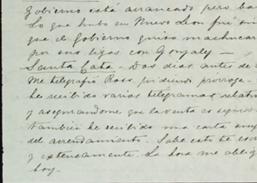 Gobierno está arrancado pero ba
Lo que hubo en Nuevo Leon fué
que el gobierno quiso machucar
por sus ligas con Gonzaly —
Santa Cata - Dos dias antes de
Me telegrafió Ross
he recibido varios telegramas relati
y asegurandome que la venta es
Tambien he recibido una carta
del arrendamiento. Sabe este
y extensamente. La hora me obliga
hoy.